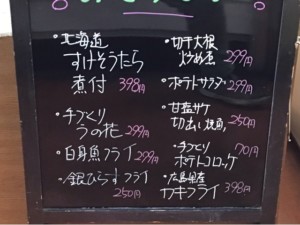 ・北海道
すけそうたら
煮付 398円
・手づくり
うの花 299円
・白身魚フライ 299円
・銀ひらすフライ
250円
・切干大根
炒め煮 299円
・ポテトサラダ 299円
・甘塩サケ
切出し焼 250円
・手づくり
ポテトコロッケ 70円
・広島県産
カキフライ 398円